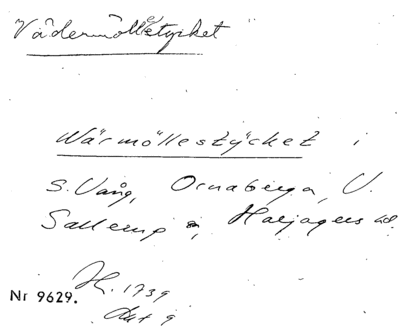 Vädermöllestycket
Wärmöllestycket i
S. Vång, Ornaberga, V.
Sallerup s, Harjagers hd.
H. 1739
Nr 9629.
Akt 9